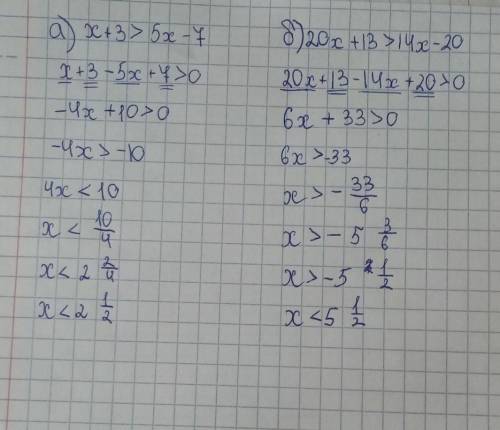 а) x+3 > 5x-7
x+3-5x+7>0
-4x+10>0
-4x>-10
4x < 10
x < 10/4
x < 2 2/4
x < 2 1/2
б) 20x+13>14x-20
20x+13-14x+20>0
6x+33>0
6x>-33
x > - 33/6
x > - 5 3/6
x > -5 1/2
x < 5 1/2